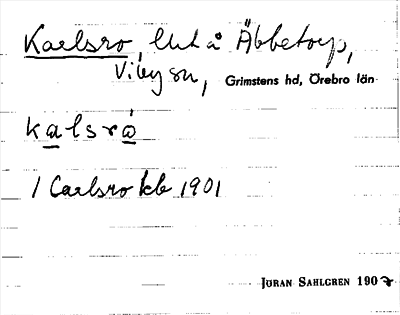 Karlsro, lht å Äbbetorp,
Viby sn, Grimstens hd, Örebro län
kalsrò
/ Carlsro kb 1901
JÖRAN SAHLGREN 1907